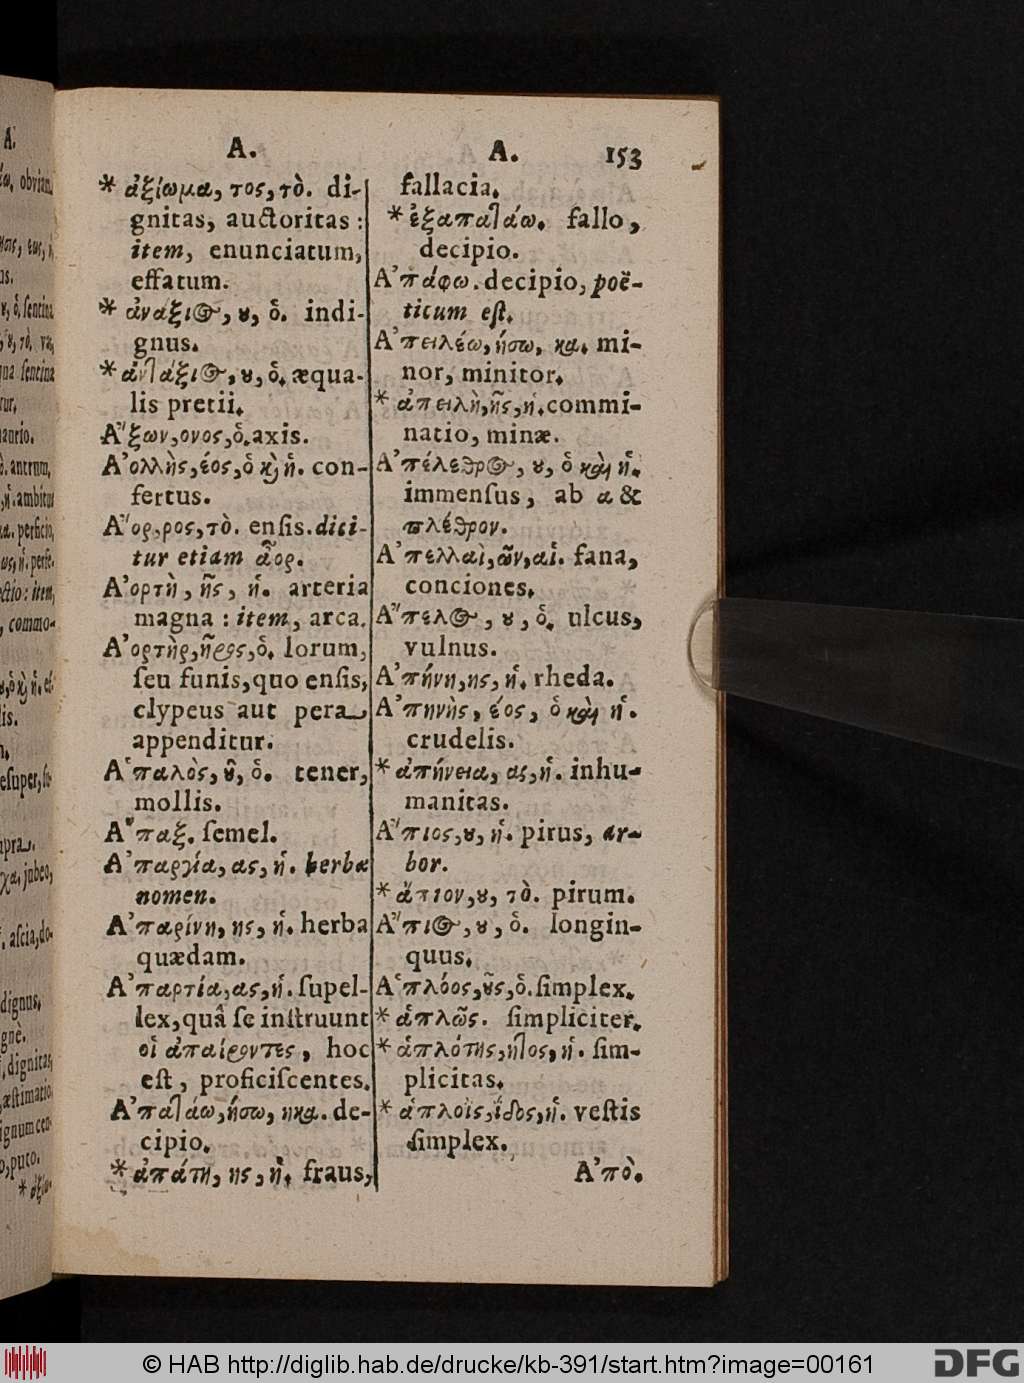 A.
* ἀξίωμα, τος, τὸ. di-
gnitas, auctoritas :
item, enunciatum,
effatum.
* ἀνάξιος, ου, ὁ. indi-
gnus.
* ἀντάξιος, ου, ὁ. æqua-
lis pretii.
Α῎ξων, ονος, ὁ. axis.
Α᾿ολλὴς, έος, ὁ καὶ ἡ. con-
fertus.
Α῎ορ, ρος, τὸ. enſis. dici-
tur etiam ἆορ.
Α᾿ορτὴ, ῆς, ἡ. arteria
magna : item, arca.
Α᾿ορτὴρ, ῆρος, ὁ. lorum,
ſeu funis, quo enſis,
clypeus aut pera
appenditur.
Α῾παλὸς, οῦ, ὁ. tener,
mollis.
Α῞παξ. ſemel.
Α᾿παργία, ας, ἡ. herbæ
nomen.
Α᾿παρίνη, ης, ἡ. herba
quædam.
Α᾿παρτία, ας, ἡ. ſupel-
lex, quâ ſe inſtruunt
οἱ ἀπαίροντες, hoc
eſt, proficiſcentes.
Α᾿πατάω, ήσω, ηκα. de-
cipio.
* ἀπάτη, ης, ἡ. fraus,
A. 153
fallacia.
* ἐξαπατάω. fallo,
decipio.
Α᾿πάφω. decipio, poë-
ticum eſt.
Α᾿πειλέω, ήσω, κα. mi-
nor, minitor.
* ἀπειλὴ, ῆς, ἡ. commi-
natio, minæ.
Α᾿πέλεθρος, ου, ὁ καὶ ἡ.
immenſus, ab α &
πλέθρον.
Α᾿πελλαὶ, ῶν, αἱ. fana,
conciones.
Α῎πελος, ου, ὁ. ulcus,
vulnus.
Α᾿πήνη, ης, ἡ. rheda.
Α᾿πηνὴς, έος, ὁ καὶ ἡ.
crudelis.
* ἀπήνεια, ας, ἡ. inhu-
manitas.
Α῎πιος, ου, ἡ. pirus, ar-
bor.
* ἄπιον, ου, τὸ. pirum.
Α῎πιος, ου, ὁ. longin-
quus.
Α῾πλόος, οῦς, ὁ. ſimplex.
* ἁπλῶς. ſimpliciter.
* ἁπλότης, ητος, ἡ. ſim-
plicitas.
* ἁπλοῒς, ΐδος, ἡ. veſtis
ſimplex.
Α᾿πὸ.
© HAB http://diglib.hab.de/drucke/kb-391/start.htm?image=00161
DFG